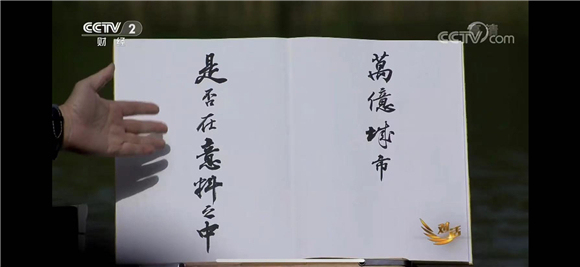 CCTV 2
财经
CCTV.com
萬億城市
是否在意料之中